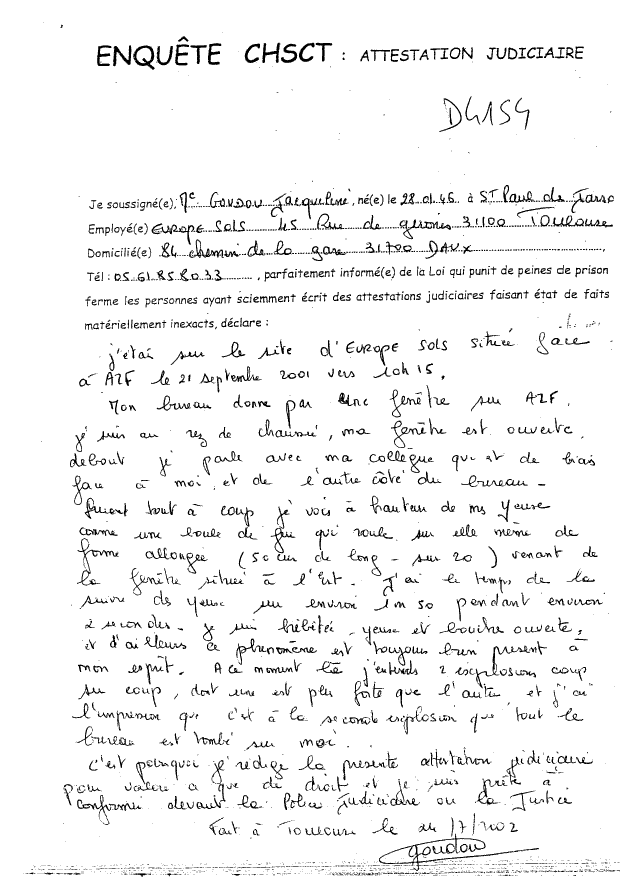 ENQUÊTE CHSCT : ATTESTATION JUDICIAIRE
D4154
Je soussigné(e), Me Goudou Jacqueline, né(e) le 28 01 46 à St Paul de
Employé(e) EUROPE SOLS 45 Rue de 31100 Toulouse
Domicilié(e) 84 chemin de la gare 31700 DAUX,
Tél : 05.61.85.80.33, parfaitement informé(e) de la Loi qui punit de peines de prison
ferme les personnes ayant sciemment écrit des attestations judiciaires faisant état de faits
matériellement inexacts, déclare :
j'étai sur le site d'EUROPE SOLS située face
à AZF le 21 septembre 2001 vers 10h15.
Mon bureau donne par une fenêtre sur AZF.
je suis au rez de chaussée, ma fenêtre est ouverte,
debout je parle avec ma collègue qui est de biais
face à moi, et de l'autre côté du bureau -
tout à coup je vois à hauteur de mes yeuse
comme une boule de feu qui roule sur elle même de
forme allongée (50 cm de long - sur 20) venant de
la fenêtre située à l'Est. J'ai le temps de la
suivre des yeuse sur environ 1m50 pendant environ
2 secondes - je suis hébétée - yeuse et bouche ouverte,
et d'ailleurs ce phénomène est toujours bien présent à
mon esprit. A ce moment là j'entends 2 explosions coup
sur coup, dont une est plus forte que l'autre et j'ai
l'impression que c'est à la seconde explosion que tout le
bureau est tombé sur moi.
C'est pourquoi je rédige la présente attestation judiciaire
pour valoir a que de droit et je suis prête à
confirmer devant la Police Judiciaire ou la Justice
Fait à Toulouse le 24/7/2002
Goudou